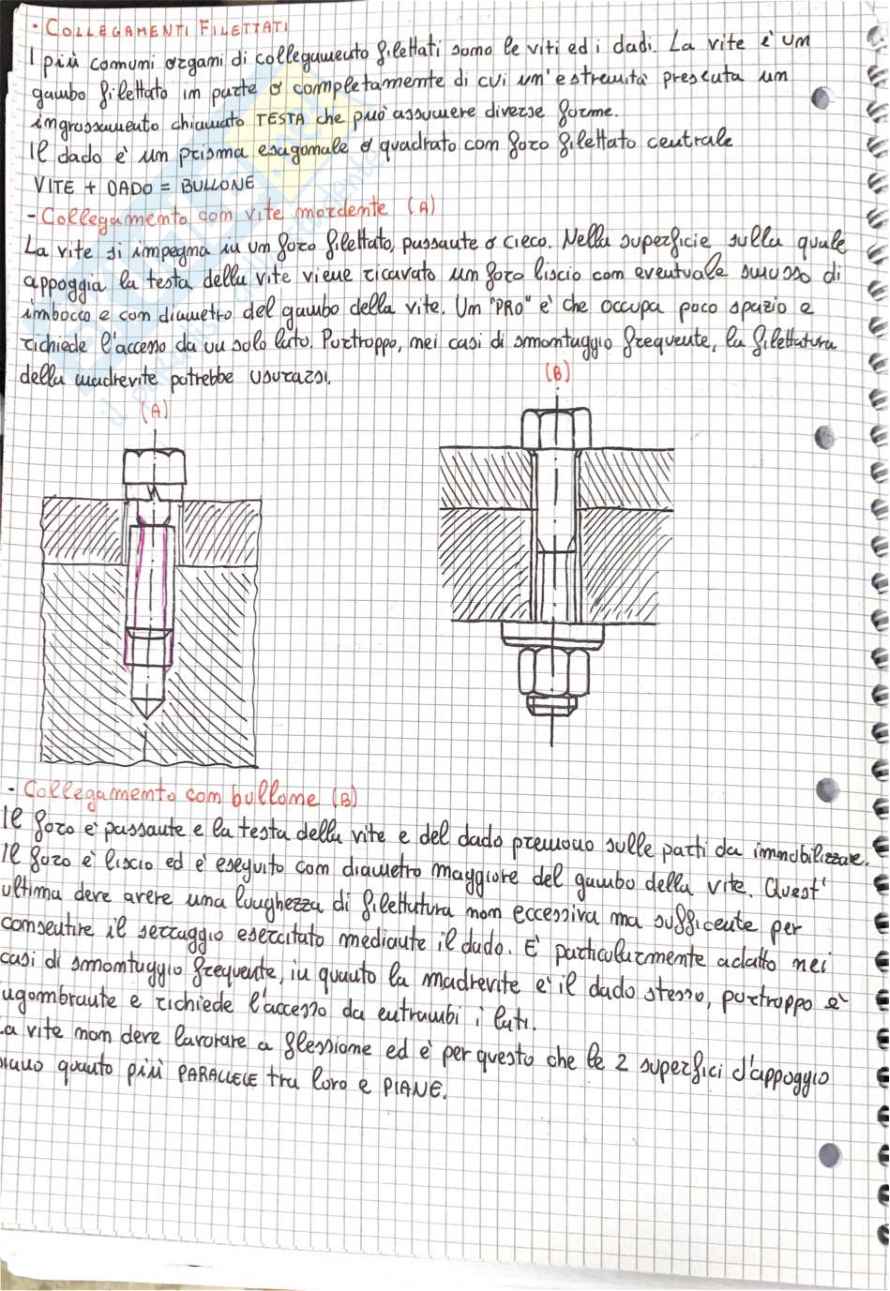 - COLLEGAMENTI FILETTATI
I più comuni organi di collegamento filettati sono le viti ed i dadi. La vite è un
gambo filettato in parte o completamente di cui un'estremità presenta un
ingrossamento chiamato TESTA che può assumere diverse forme.
Il dado è un prisma esagonale o quadrato con foro filettato centrale
VITE + DADO = BULLONE
- Collegamento con vite mordente (A)
La vite si impegna in un foro filettato, passante o cieco. Nella superficie sulla quale
appoggia la testa della vite viene ricavato un foro liscio con eventuale smusso di
imbocco e con diametro del gambo della vite. Un "PRO" è che occupa poco spazio e
richiede l'accesso da un solo lato. Purtroppo, nei casi di smontaggio frequente, la filettatura
della madrevite potrebbe usurarsi.
(A)
(B)
- Collegamento con bullone (B)
Il foro è passante e la testa della vite e del dado premono sulle parti da immobilizzare.
Il foro è liscio ed è eseguito con diametro maggiore del gambo della vite. Quest'
ultima deve avere una lunghezza di filettatura non eccessiva ma sufficente per
consentire il serraggio esercitato mediante il dado. E' particolarmente adatto nei
casi di smontaggio frequente, in quanto la madrevite è il dado stesso, purtroppo è
ingombrante e richiede l'accesso da entrambi i lati.
La vite non deve lavorare a flessione ed è per questo che le 2 superfici d'appoggio
siano quanto più PARALLELE tra loro e PIANE.